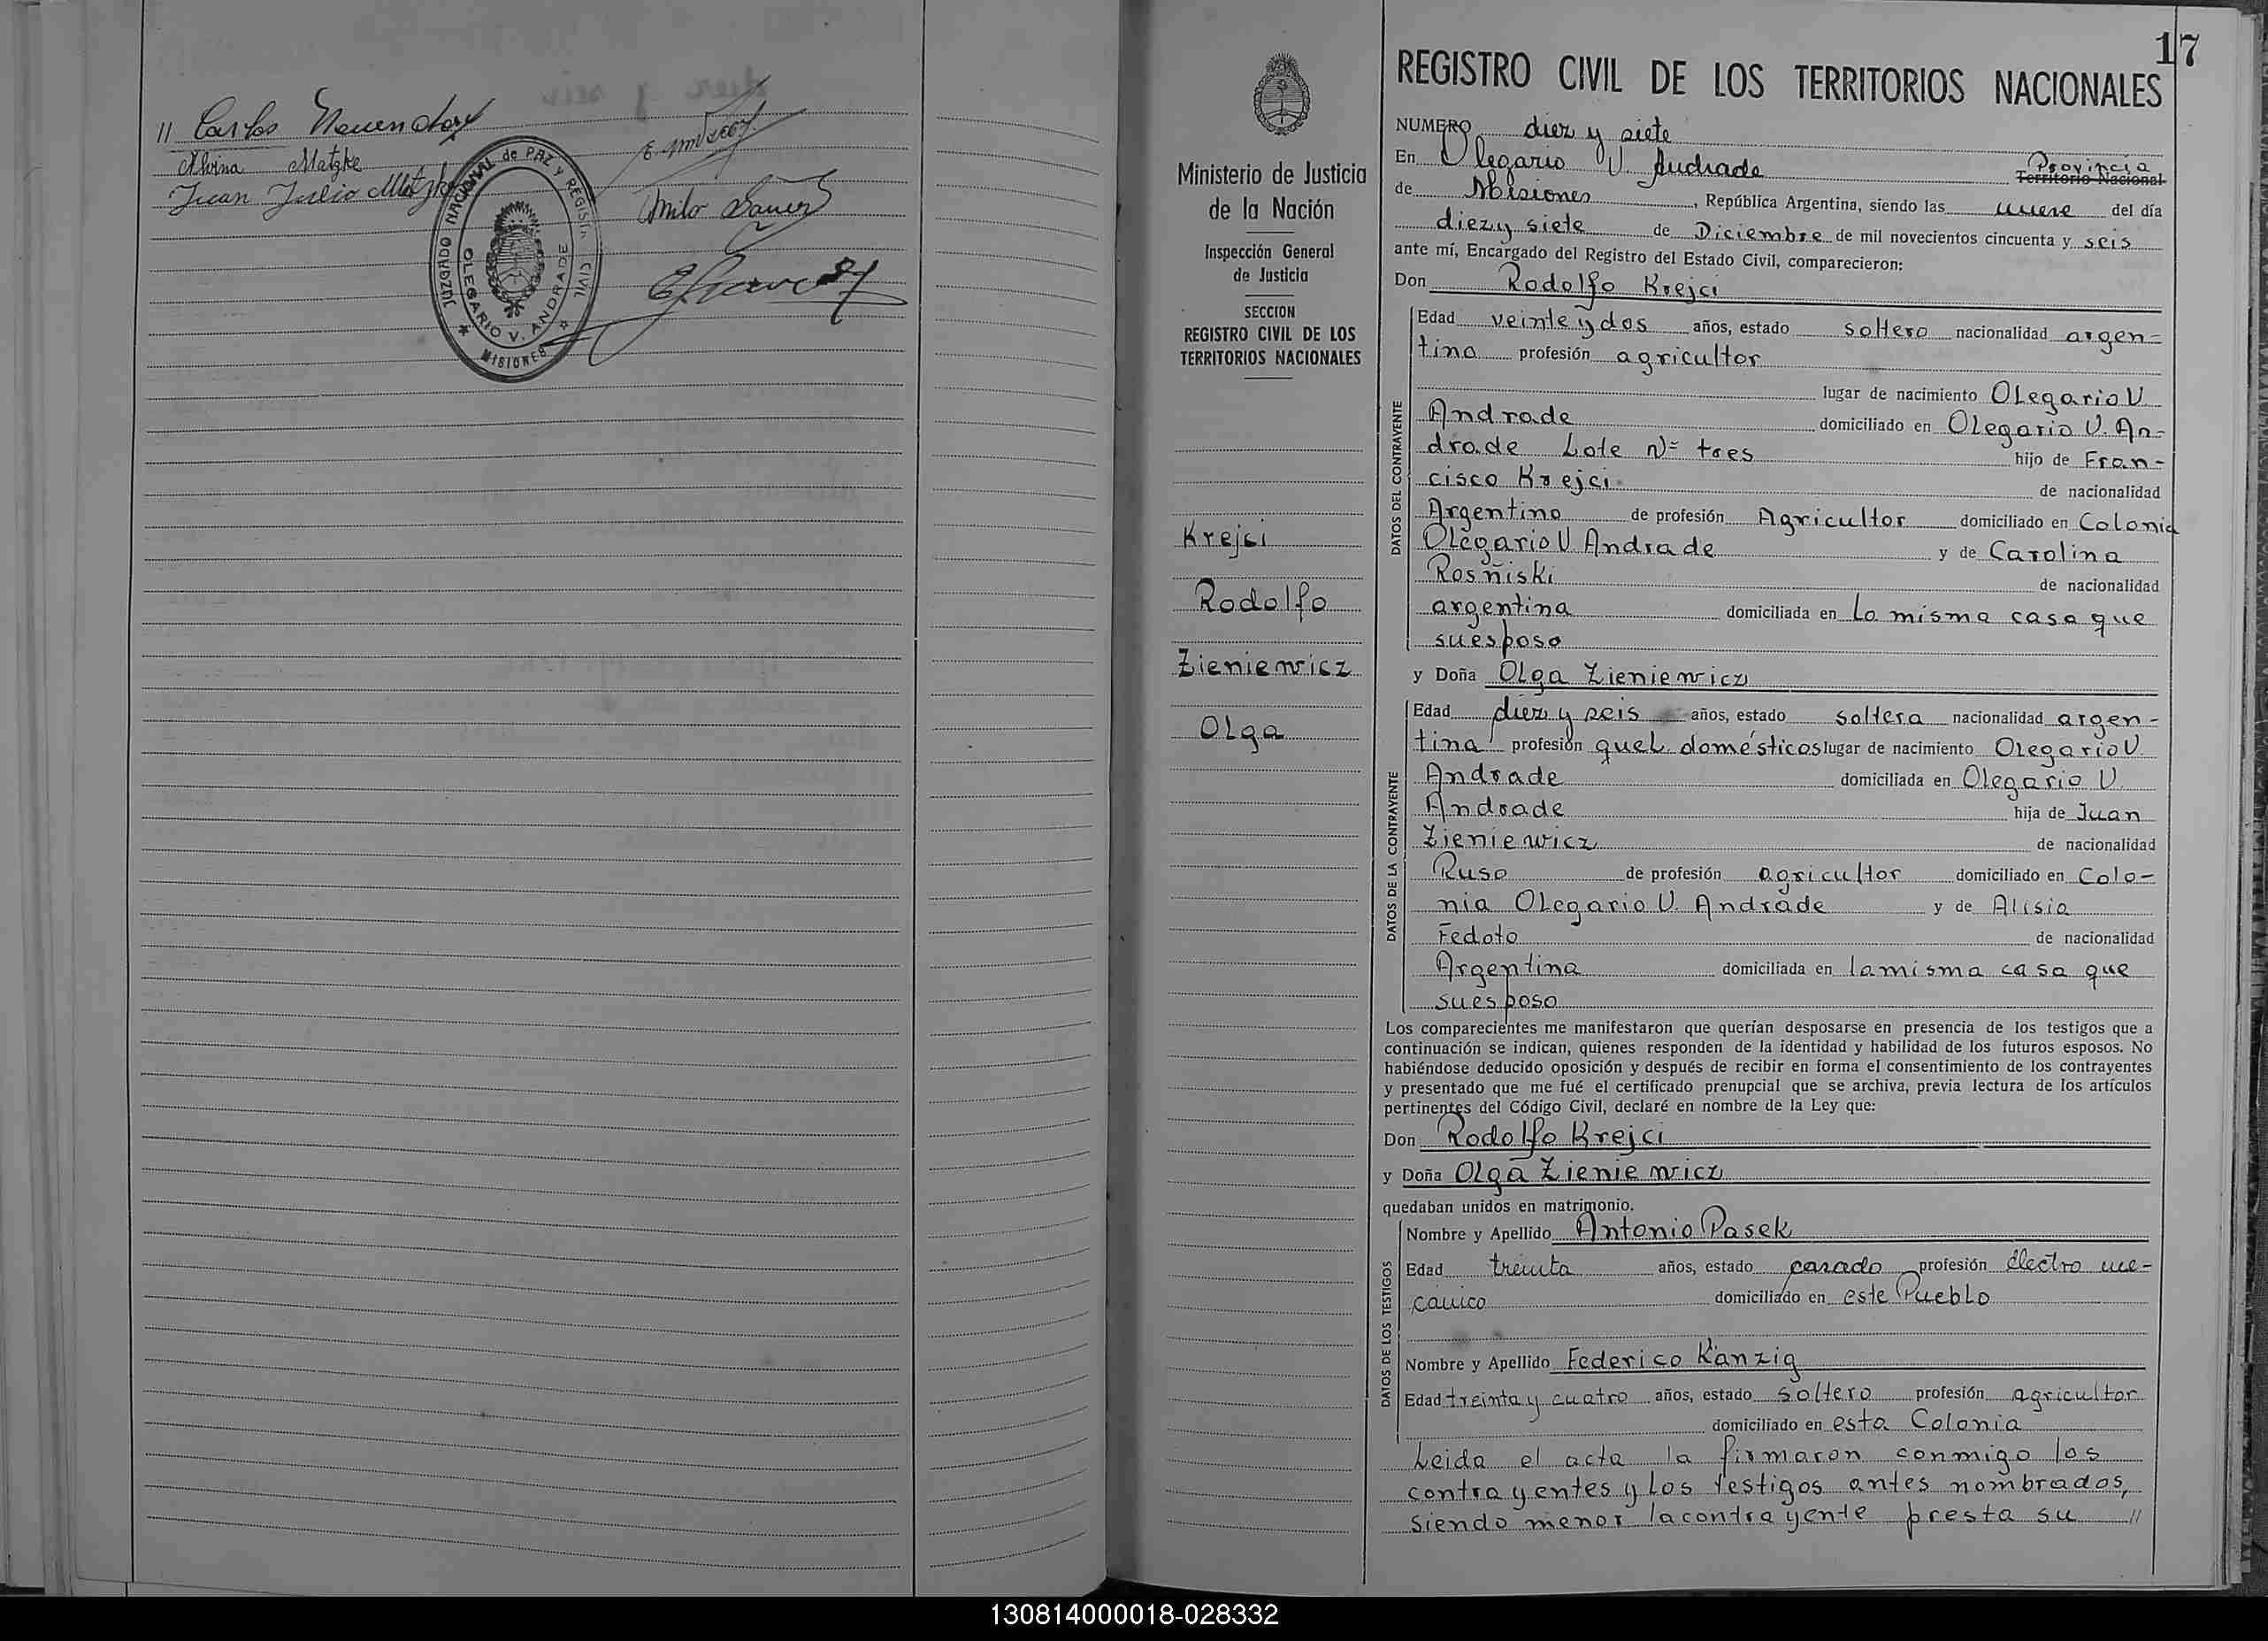 // Carlos
Alvina Matzke
Juan Julio Matzke
JUZGADO NACIONAL de PAZ Y REGISTRO CIVIL
OLEGARIO V. ANDRADE
MISIONES
17
Ministerio de Justicia
de la Nación
Inspección General
de Justicia
SECCION
REGISTRO CIVIL DE LOS
TERRITORIOS NACIONALES
Krejci
Rodolfo
Zieniewicz
Olga
REGISTRO CIVIL DE LOS TERRITORIOS NACIONALES
NUMERO diez y siete
En Olegario V. Andrade Provincia Territorio Nacional
de Misiones, República Argentina, siendo las nueve del día
diez y siete de Diciembre de mil novecientos cincuenta y seis
ante mí, Encargado del Registro del Estado Civil, comparecieron:
Don Rodolfo Krejci
DATOS DEL CONTRAYENTE
Edad veinte y dos años, estado soltero nacionalidad argen-
tina profesión agricultor
lugar de nacimiento Olegario V
Andrade domiciliado en Olegario V. An-
drade Lote Nº tres hijo de Fran-
cisco Krejci de nacionalidad
Argentino de profesión Agricultor domiciliado en Colonia
Olegario V Andrade y de Carolina
Rosñiski de nacionalidad
argentina domiciliada en La misma casa que
su esposo
y Doña Olga Zieniewicz
DATOS DE LA CONTRAYENTE
Edad diez y seis años, estado soltera nacionalidad argen-
tina profesión queh. domésticos lugar de nacimiento Olegario V.
Andrade domiciliada en Olegario V.
Andrade hija de Juan
Zieniewicz de nacionalidad
Ruso de profesión agricultor domiciliado en Colo-
nia Olegario V. Andrade y de Alisia
Fedoto de nacionalidad
Argentina domiciliada en la misma casa que
su esposo
Los comparecientes me manifestaron que querían desposarse en presencia de los testigos que a
continuación se indican, quienes responden de la identidad y habilidad de los futuros esposos. No
habiéndose deducido oposición y después de recibir en forma el consentimiento de los contrayentes
y presentado que me fué el certificado prenupcial que se archiva, previa lectura de los artículos
pertinentes del Código Civil, declaré en nombre de la Ley que:
Don Rodolfo Krejci
y Doña Olga Zieniewicz
quedaban unidos en matrimonio.
DATOS DE LOS TESTIGOS
Nombre y Apellido Antonio Pasek
Edad treinta años, estado casado profesión électro me-
canico domiciliado en este Pueblo
Nombre y Apellido Federico Känzig
Edad treinta y cuatro años, estado soltero profesión agricultor
domiciliado en esta Colonia
Leida el acta la firmaron conmigo los
contrayentes y los testigos antes nombrados,
siendo menor la contrayente presta su //
130814000018-028332